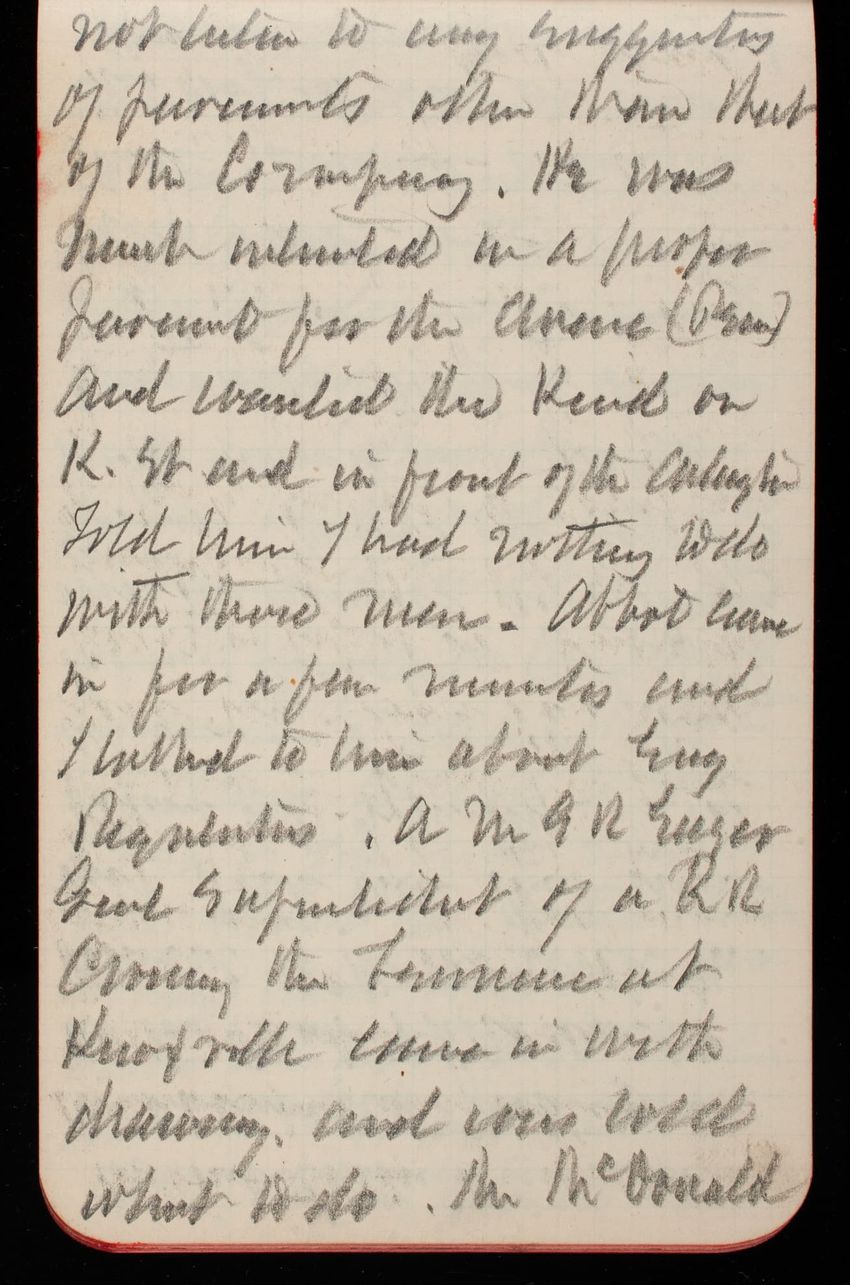 not listen to any suggestions
of pavements other than that
of the Company. He was
much interested in a proper
pavement for the Avenue (Penn)
and wanted the kind on
K. St and in front of the Arlington
Told him I had nothing to do
with those men. Abbot came
in for a few minutes and
I talked to him about Eng
Regulations. A Mr G R
Genl Superintendent of a RR
Crossing the Tennessee at
Knoxville came in with
drawing. and was told
what to do. The McDonald